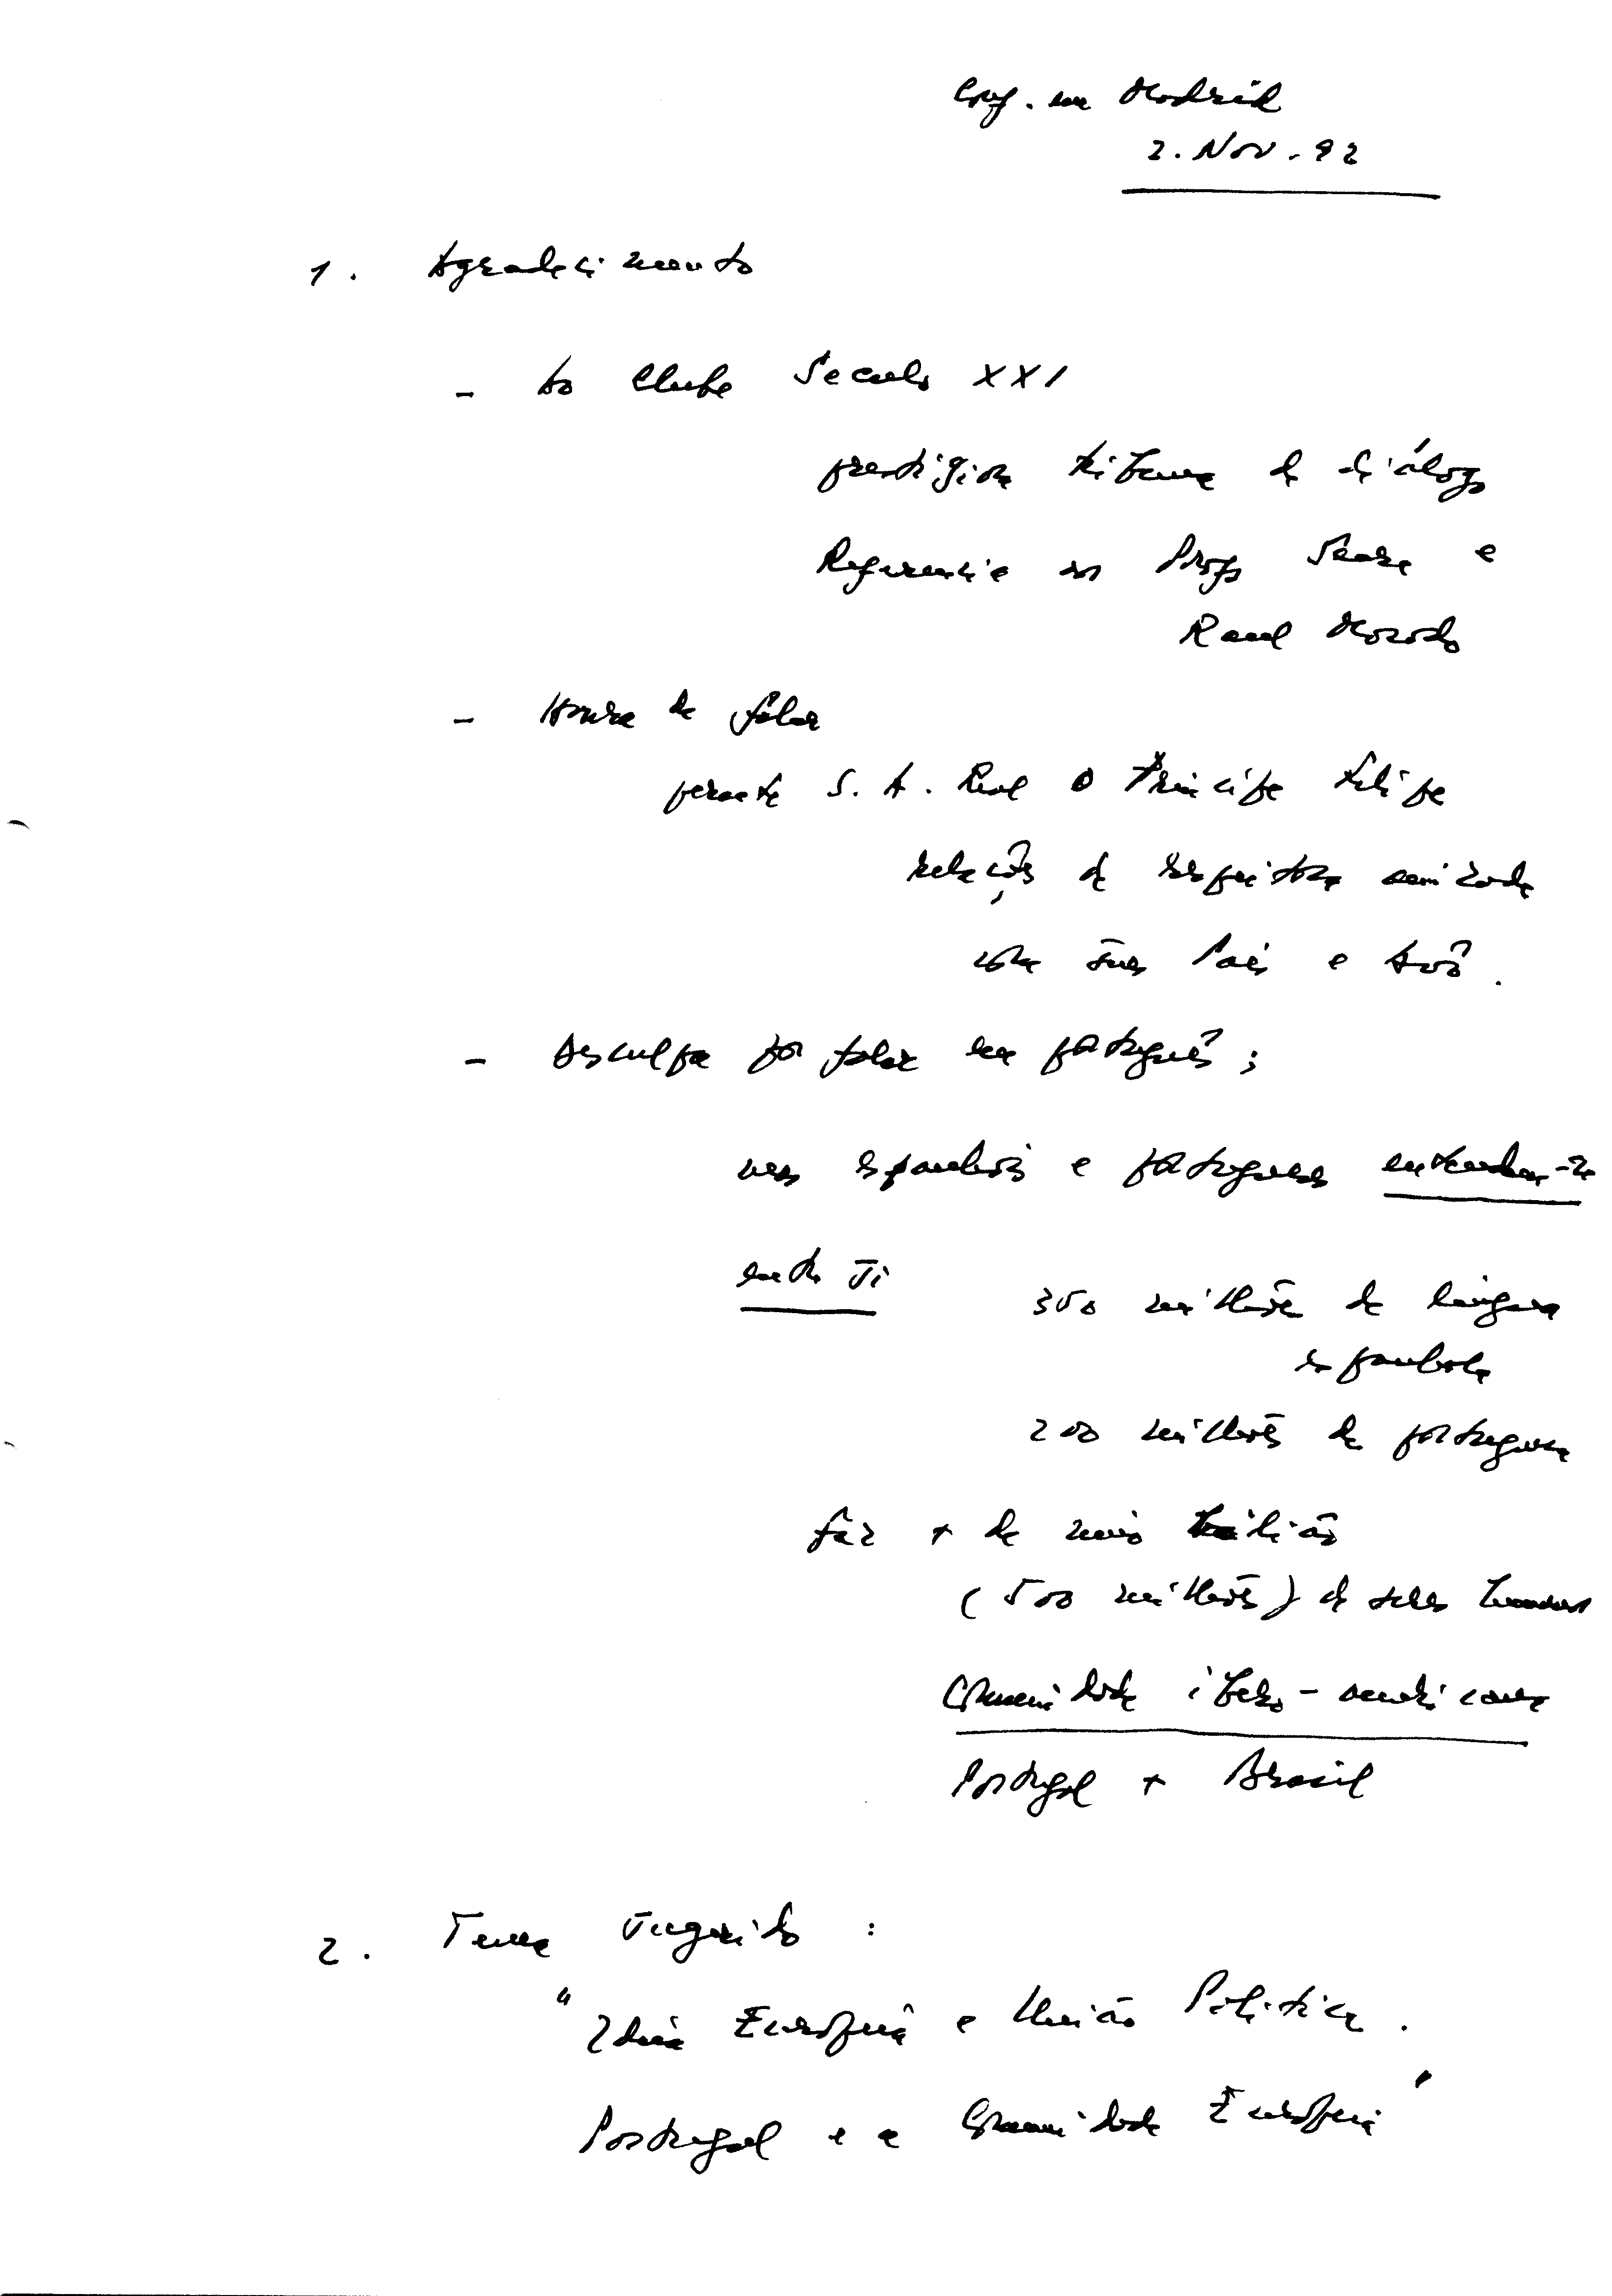 Conf. em Madrid
2. Nov. 92
1. Agradecimento
- Ao Clube Seculo XXI
prestigiosa tribuna de diálogo
Referencia ao Prof
Raul Morodo
- Honra de falar
perante S. A. Real o Príncipe Felipe
relações de respeitosa amizade
com seus Pais e Avô.
- Desculpa por falar em português;
mas espanhóis e portugueses entendem-se
entre si
350 milhões de língua
espanhola
200 milhões de portuguesa
faz + de meio bilião
(500 milhões) de seres humanos
Comunidade ibero-americana
Portugal + Brasil
2. Tema sugerido:
"Ideia Europeia e União Política.
Portugal e a Comunidade Europeia"